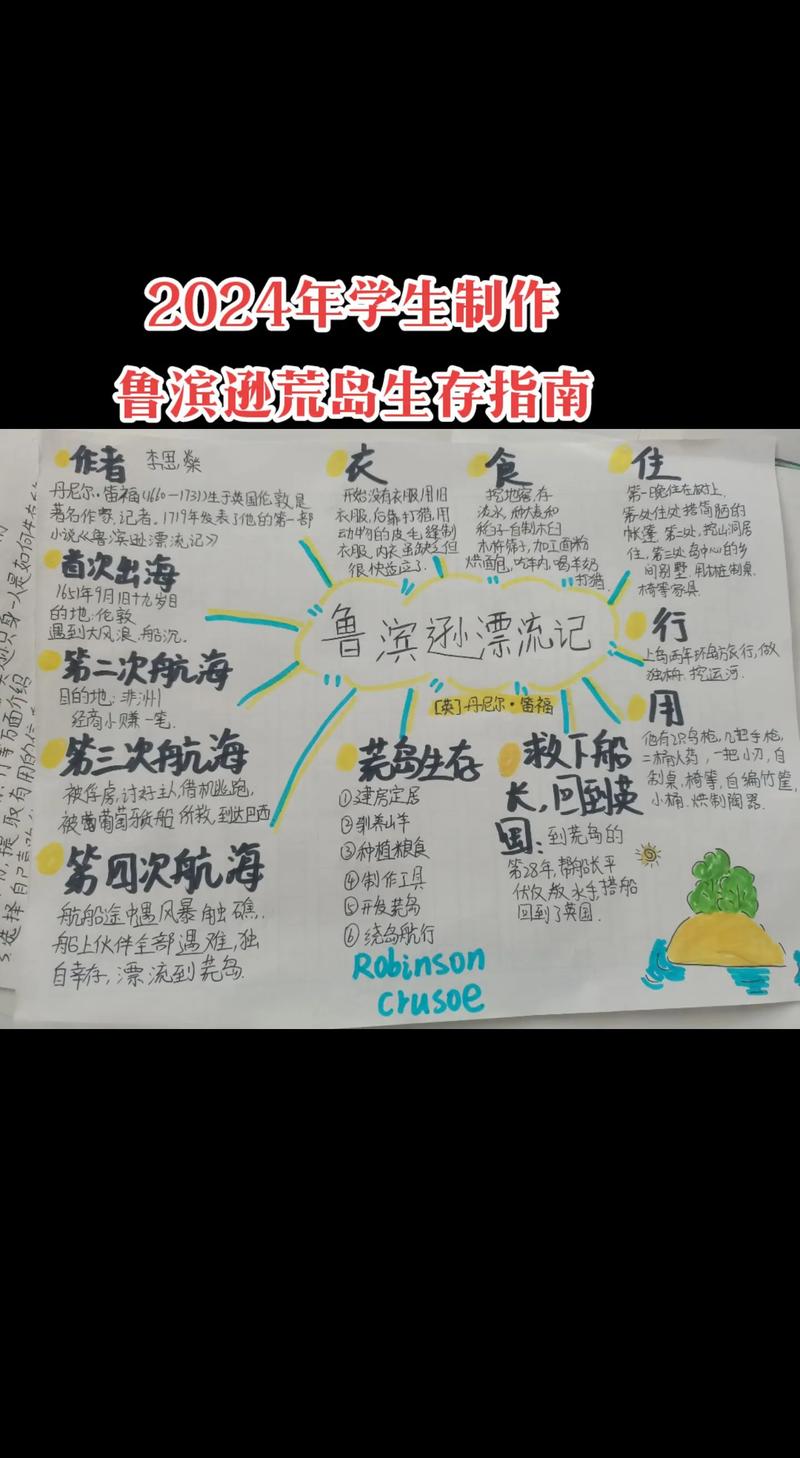 2024年学生制作
鲁滨逊荒岛生存指南
作者 李思燊
丹尼尔·笛福(1660—1731)生于英国伦敦是
著名作家,记者。1719年发表了他的第一部
小说《鲁滨逊漂流记》
首次出海
1651年9月1日十九岁
目的地:伦敦
遇到大风浪,船沉。
第二次航海
目的地:非洲
经商小赚一笔.
第三次航海
被俘虏,讨好主人,借机逃跑,
被葡萄牙货船所救,到达巴西
第四次航海
航船途中遇风暴触礁,
船上伙伴全部遇难,独
自幸存,漂流到荒岛.
衣
开始没有衣服用旧
衣服,后靠打猎,用
动物的皮毛缝制
衣服,内衣虽缺乏但
很快适应了.
食
挖地窖,存
淡水,种大麦和
稻子自制木臼
木杵筛子,加工面粉
烘面包,吃羊肉,喝羊奶
打猎.
住
第一晚住在树上,
第一处住处搭简陋的
帐篷 第二处,挖山洞居
住,第三处岛中心的乡
间别墅.用木桩制桌.
椅等家具.
行
上岛两年环岛旅行,做
独木舟.挖运河.
用
他有2只鸟枪,几把手枪,
二桶火药,一把小刀,自
制桌,椅等,自编竹筐,
小桶.烘制陶器.
鲁滨逊漂流记
[英]丹尼尔·笛福
荒岛生存
①建房定居
②驯养山羊
③种植粮食
④制作工具
⑤开发荒岛
⑥绕岛航行
Robinson
crusoe
救下船
长,回到英
国: 到荒岛的
第28年,帮船长平
伏反叛水手,搭船
回到了英国.